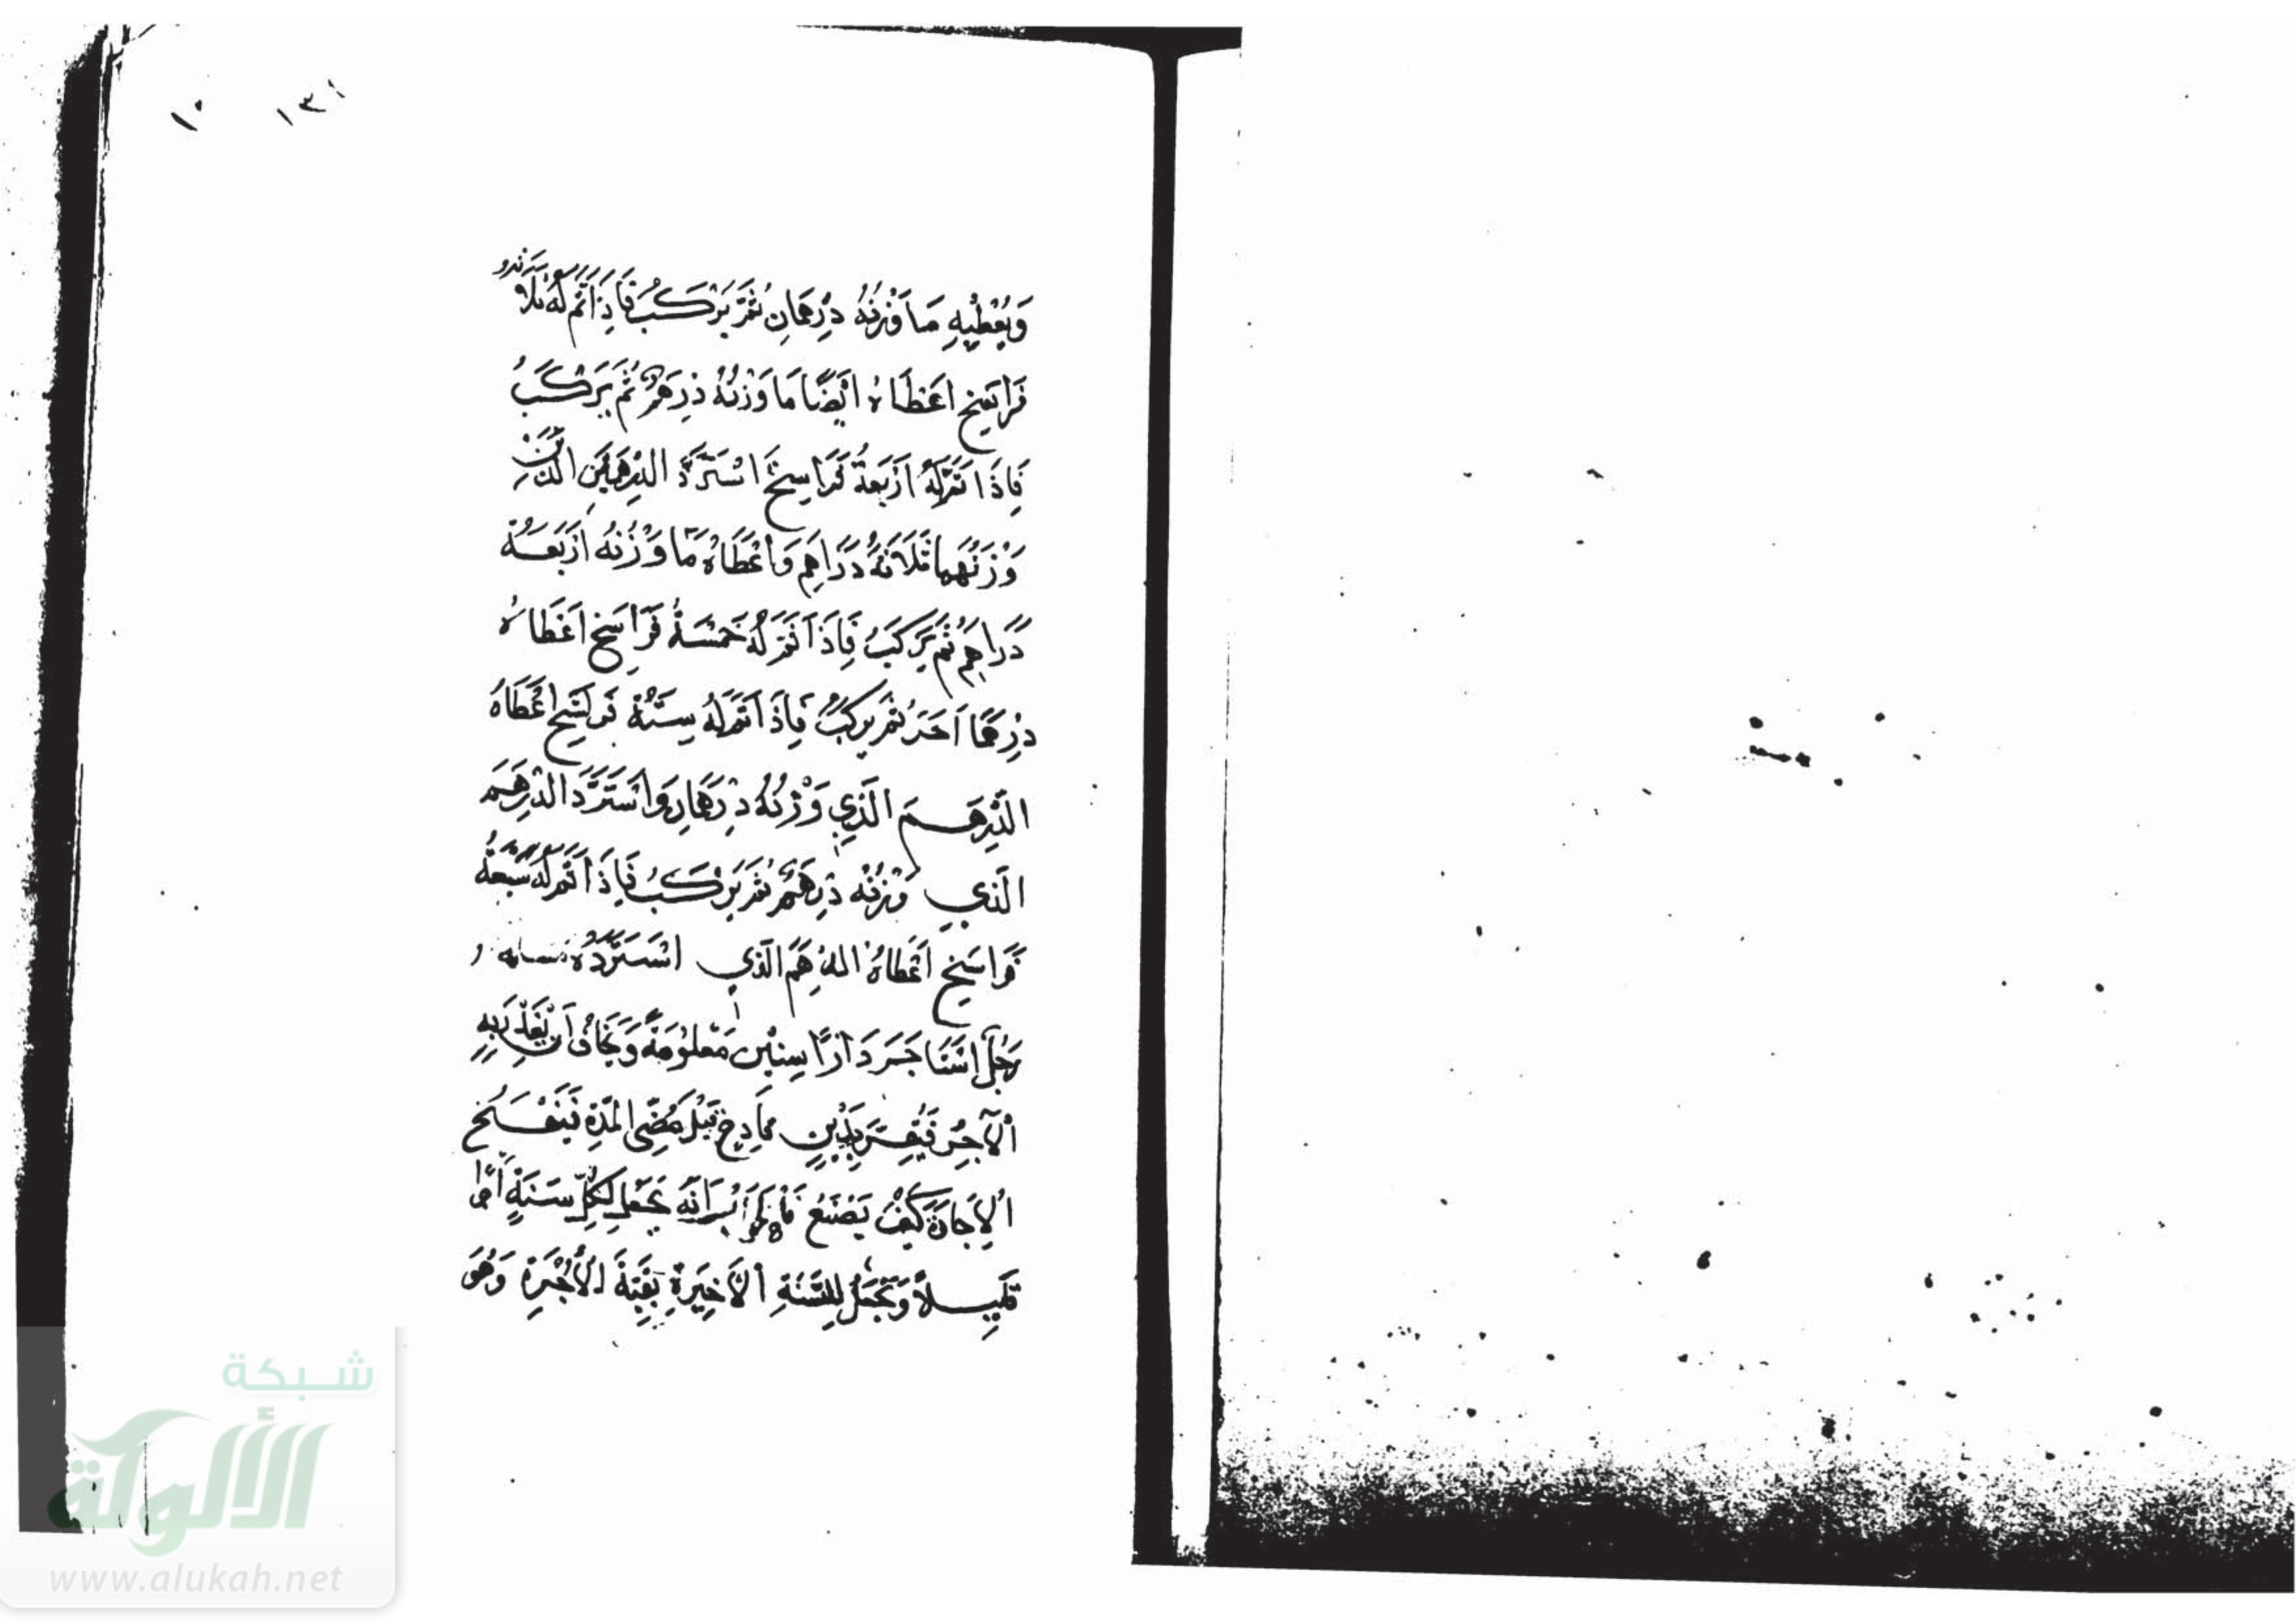 ١٣١
١٠
وَيُعْطِيهِ مَا وَزْنُهُ دِرْهَمَانِ ثُمَّ يَرْكَبُ فَإِذَا تَمَّ لَهُ ثَلَاثَةُ
فَرَاسِخَ اَعْطَاهُ اَيْضًا مَا وَزْنُهُ دِرْهَمٌ ثُمَّ يَرْكَبُ
فَاِذَا تَمَّ لَهُ اَرْبَعَةُ فَرَاسِخَ اسْتَرَدَّ الدِّرْهَمَيْنِ الَّذَيْنِ
وَزْنُهُمَا ثَلَاثَةُ دَرَاهِمَ وَاَعْطَاهُ مَا وَزْنُهُ اَرْبَعَةُ
دَرَاهِمَ ثُمَّ يَرْكَبُ فَاِذَا تَمَّ لَهُ خَمْسَةُ فَرَاسِخَ اَعْطَاهُ
دِرْهَمًا آخَرَ ثُمَّ يَرْكَبُ فَاِذَا تَمَّ لَهُ سِتَّةُ فَرَاسِخَ اَعْطَاهُ
الدِّرْهَمَ الَّذِي وَزْنُهُ دِرْهَمَانِ وَاسْتَرَدَّ الدِّرْهَمَ
الَّذِي وَزْنُهُ دِرْهَمٌ ثُمَّ يَرْكَبُ فَاِذَا تَمَّ لَهُ سَبْعَةُ
فَرَاسِخَ اَعْطَاهُ الدِّرْهَمَ الَّذِي اسْتَرَدَّهُ
رَجُلٌ اسْتَاجَرَ دَارًا سِنِينَ مَعْلُومَةً وَيَخَافُ اَنْ يَغْدِرَ بِهِ
الْآجِرُ فَيُقِرَّ بِدَيْنٍ فَادِحٍ قَبْلَ مُضِيِّ الْمُدَّةِ فَيَنْفَسِخَ
الْاِجَارَةُ كَيْفَ يَصْنَعُ اَنَّهُ يَجْعَلُ لِكُلِّ سَنَةٍ اَجْرًا
قَلِيلًا وَيَجْعَلُ لِلسَّنَةِ الْاَخِيرَةِ بَقِيَّةَ الْاُجْرَةِ وَهُوَ
شبكة
الألوكة
www.alukah.net